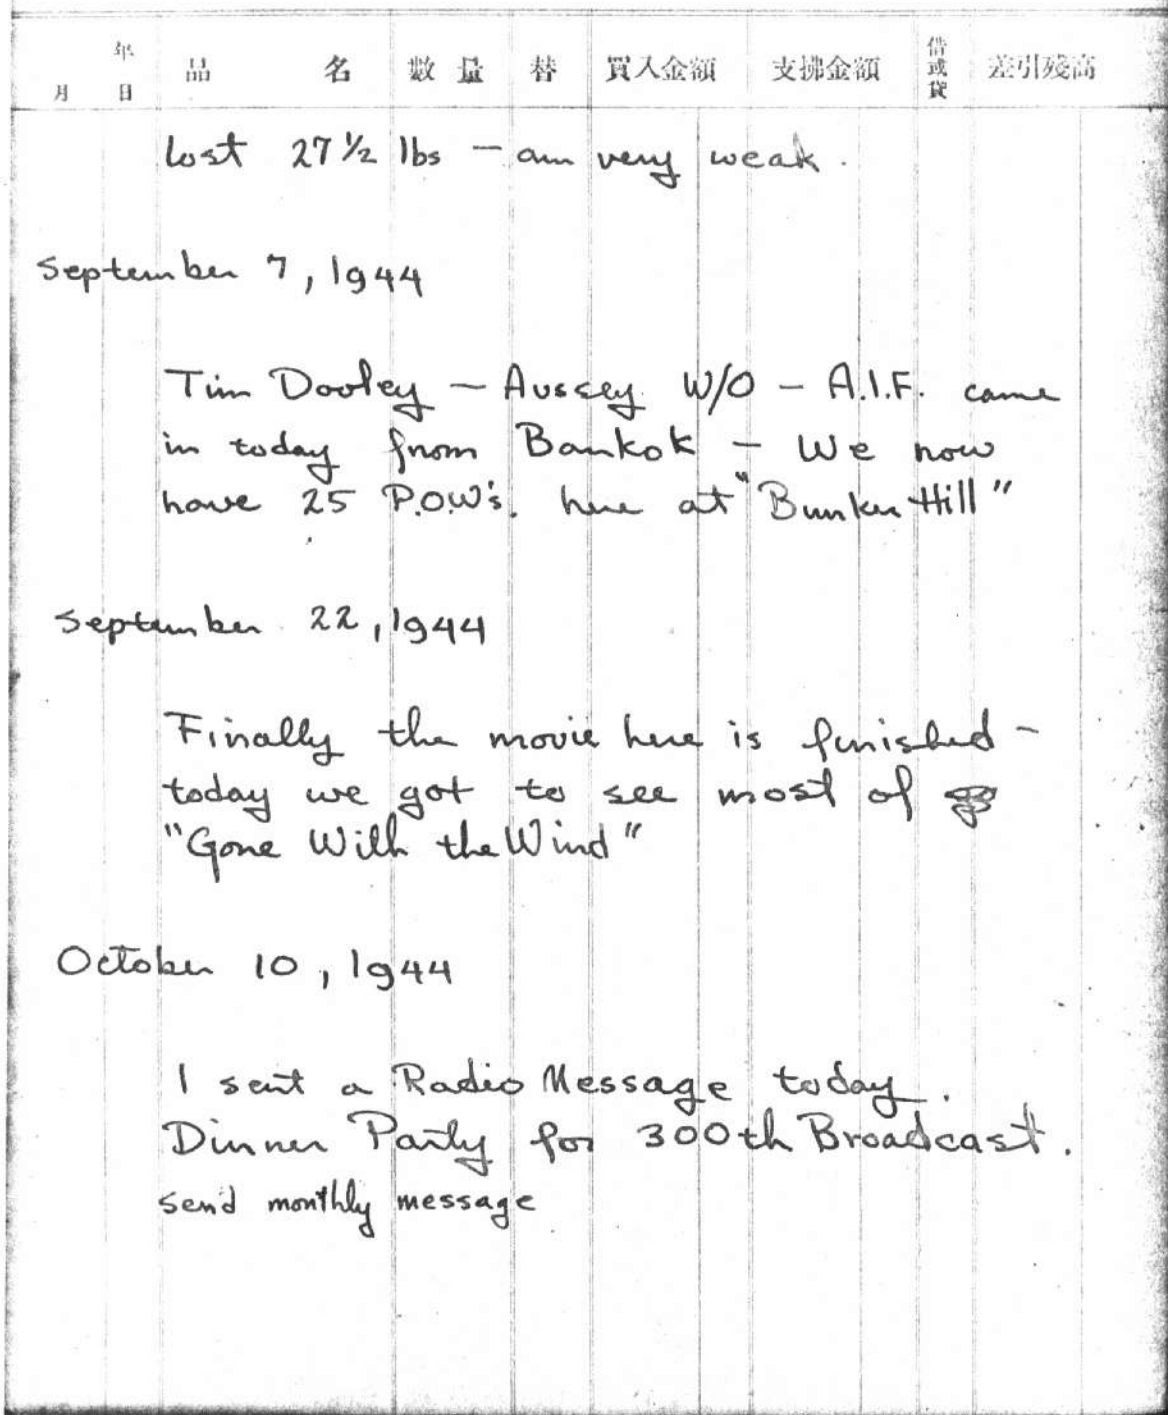 年
月 日 品 名 數量 替 買入金額 支拂金額 借或貸 差引殘高
lost 27 1/2 lbs – am very weak.
September 7, 1944
Tim Dooley – Aussey W/O – A.I.F. came
in today from Bankok – We now
have 25 P.O.W's. here at "Bunker Hill"
September 22, 1944
Finally the movie here is finished –
today we got to see most of
"Gone With the Wind"
October 10, 1944
I sent a Radio Message today.
Dinner Party for 300th Broadcast.
send monthly message